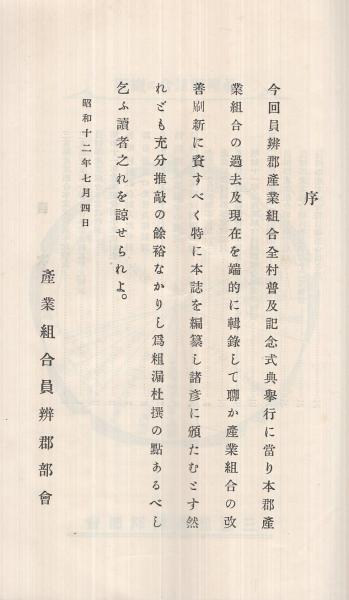 序
今回員辨郡產業組合全村普及記念式典擧行に當り本郡產
業組合の過去及現在を端的に輯錄して聊か產業組合の改
善刷新に資すべく特に本誌を編纂し諸彥に頒たむとす然
れども充分推敲の餘裕なかりし爲粗漏杜撰の點あるべし
乞ふ讀者之れを諒せられよ。
昭和十二年七月四日
產業組合員辨郡部會